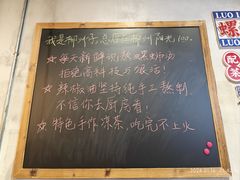 我是柳州人,总店在柳州阳光100.
☆每天新鲜现熬螺蛳汤
拒绝高科技与狠活!
☆辣椒油坚持纯手工熬制
不信你去厨房看!
☆特色手作凉茶,吃完不上火
LUO
螺
配菜